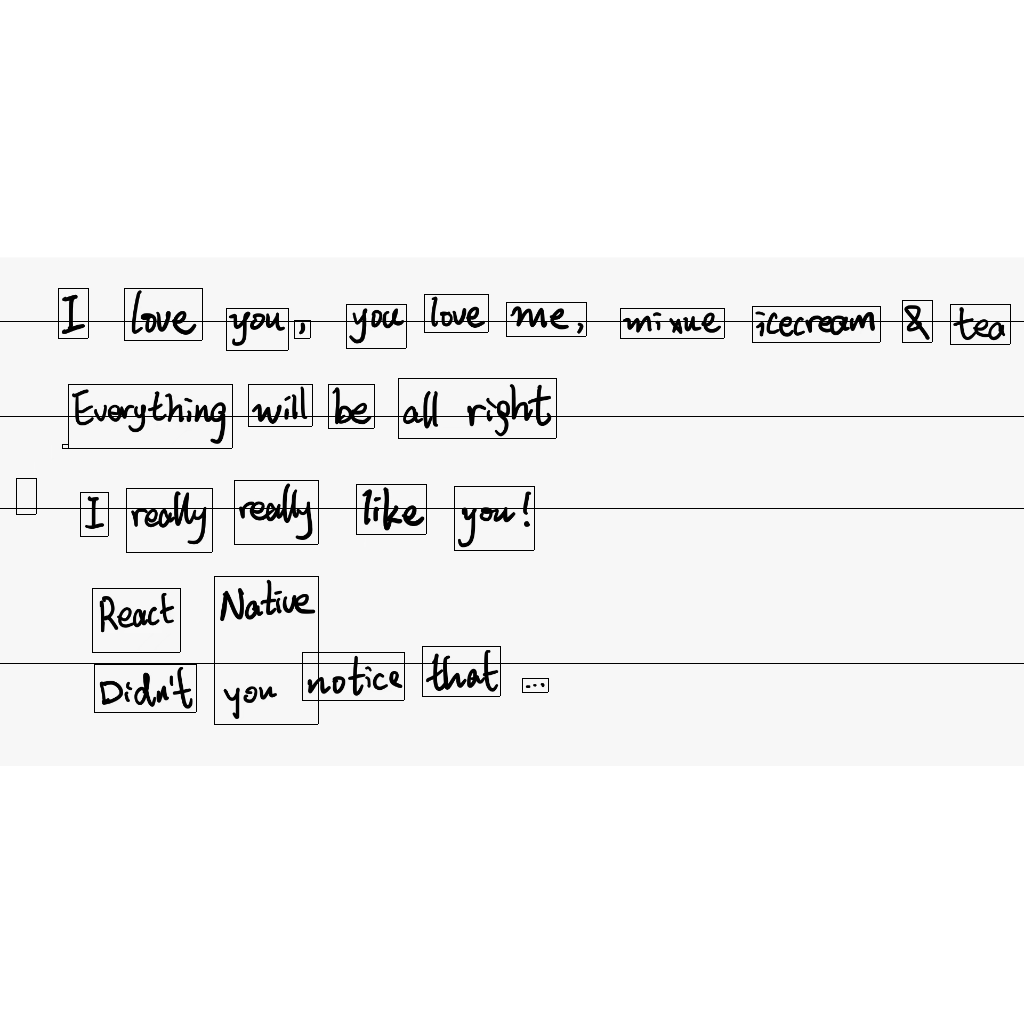 I love you, you love me, mixue icecream & tea
Everything will be all right
I really really like you!
React Native
Didn't you notice that ...